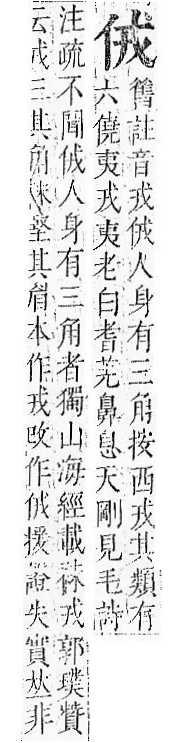 舊註音戎人身有三角按西戎其類有
六僥夷戎夷老白耆羌鼻息天剛見毛詩
注疏不聞人身有三角者獨山海經載袜戎郭璞贊
云戎三其角袜竪其眉本作戎改作援證失實𠀤非